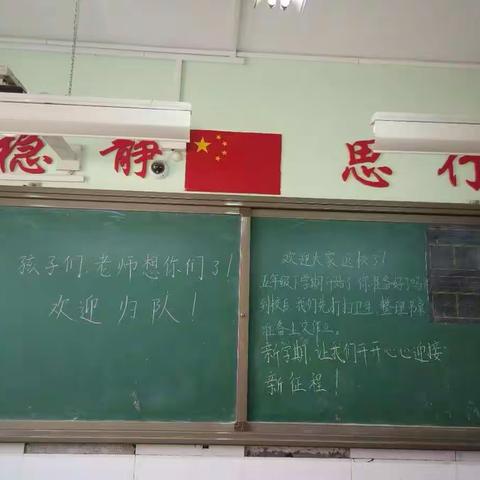 稳 静 思 行
孩子们,老师想你们了!
欢迎 归队!
欢迎大家返校了!
五年级下学期开始了,你准备好了吗?
到校后,我们先打扫卫生,整理书桌
准备上交作业。
新学期,让我们开开心心迎接
新征程!